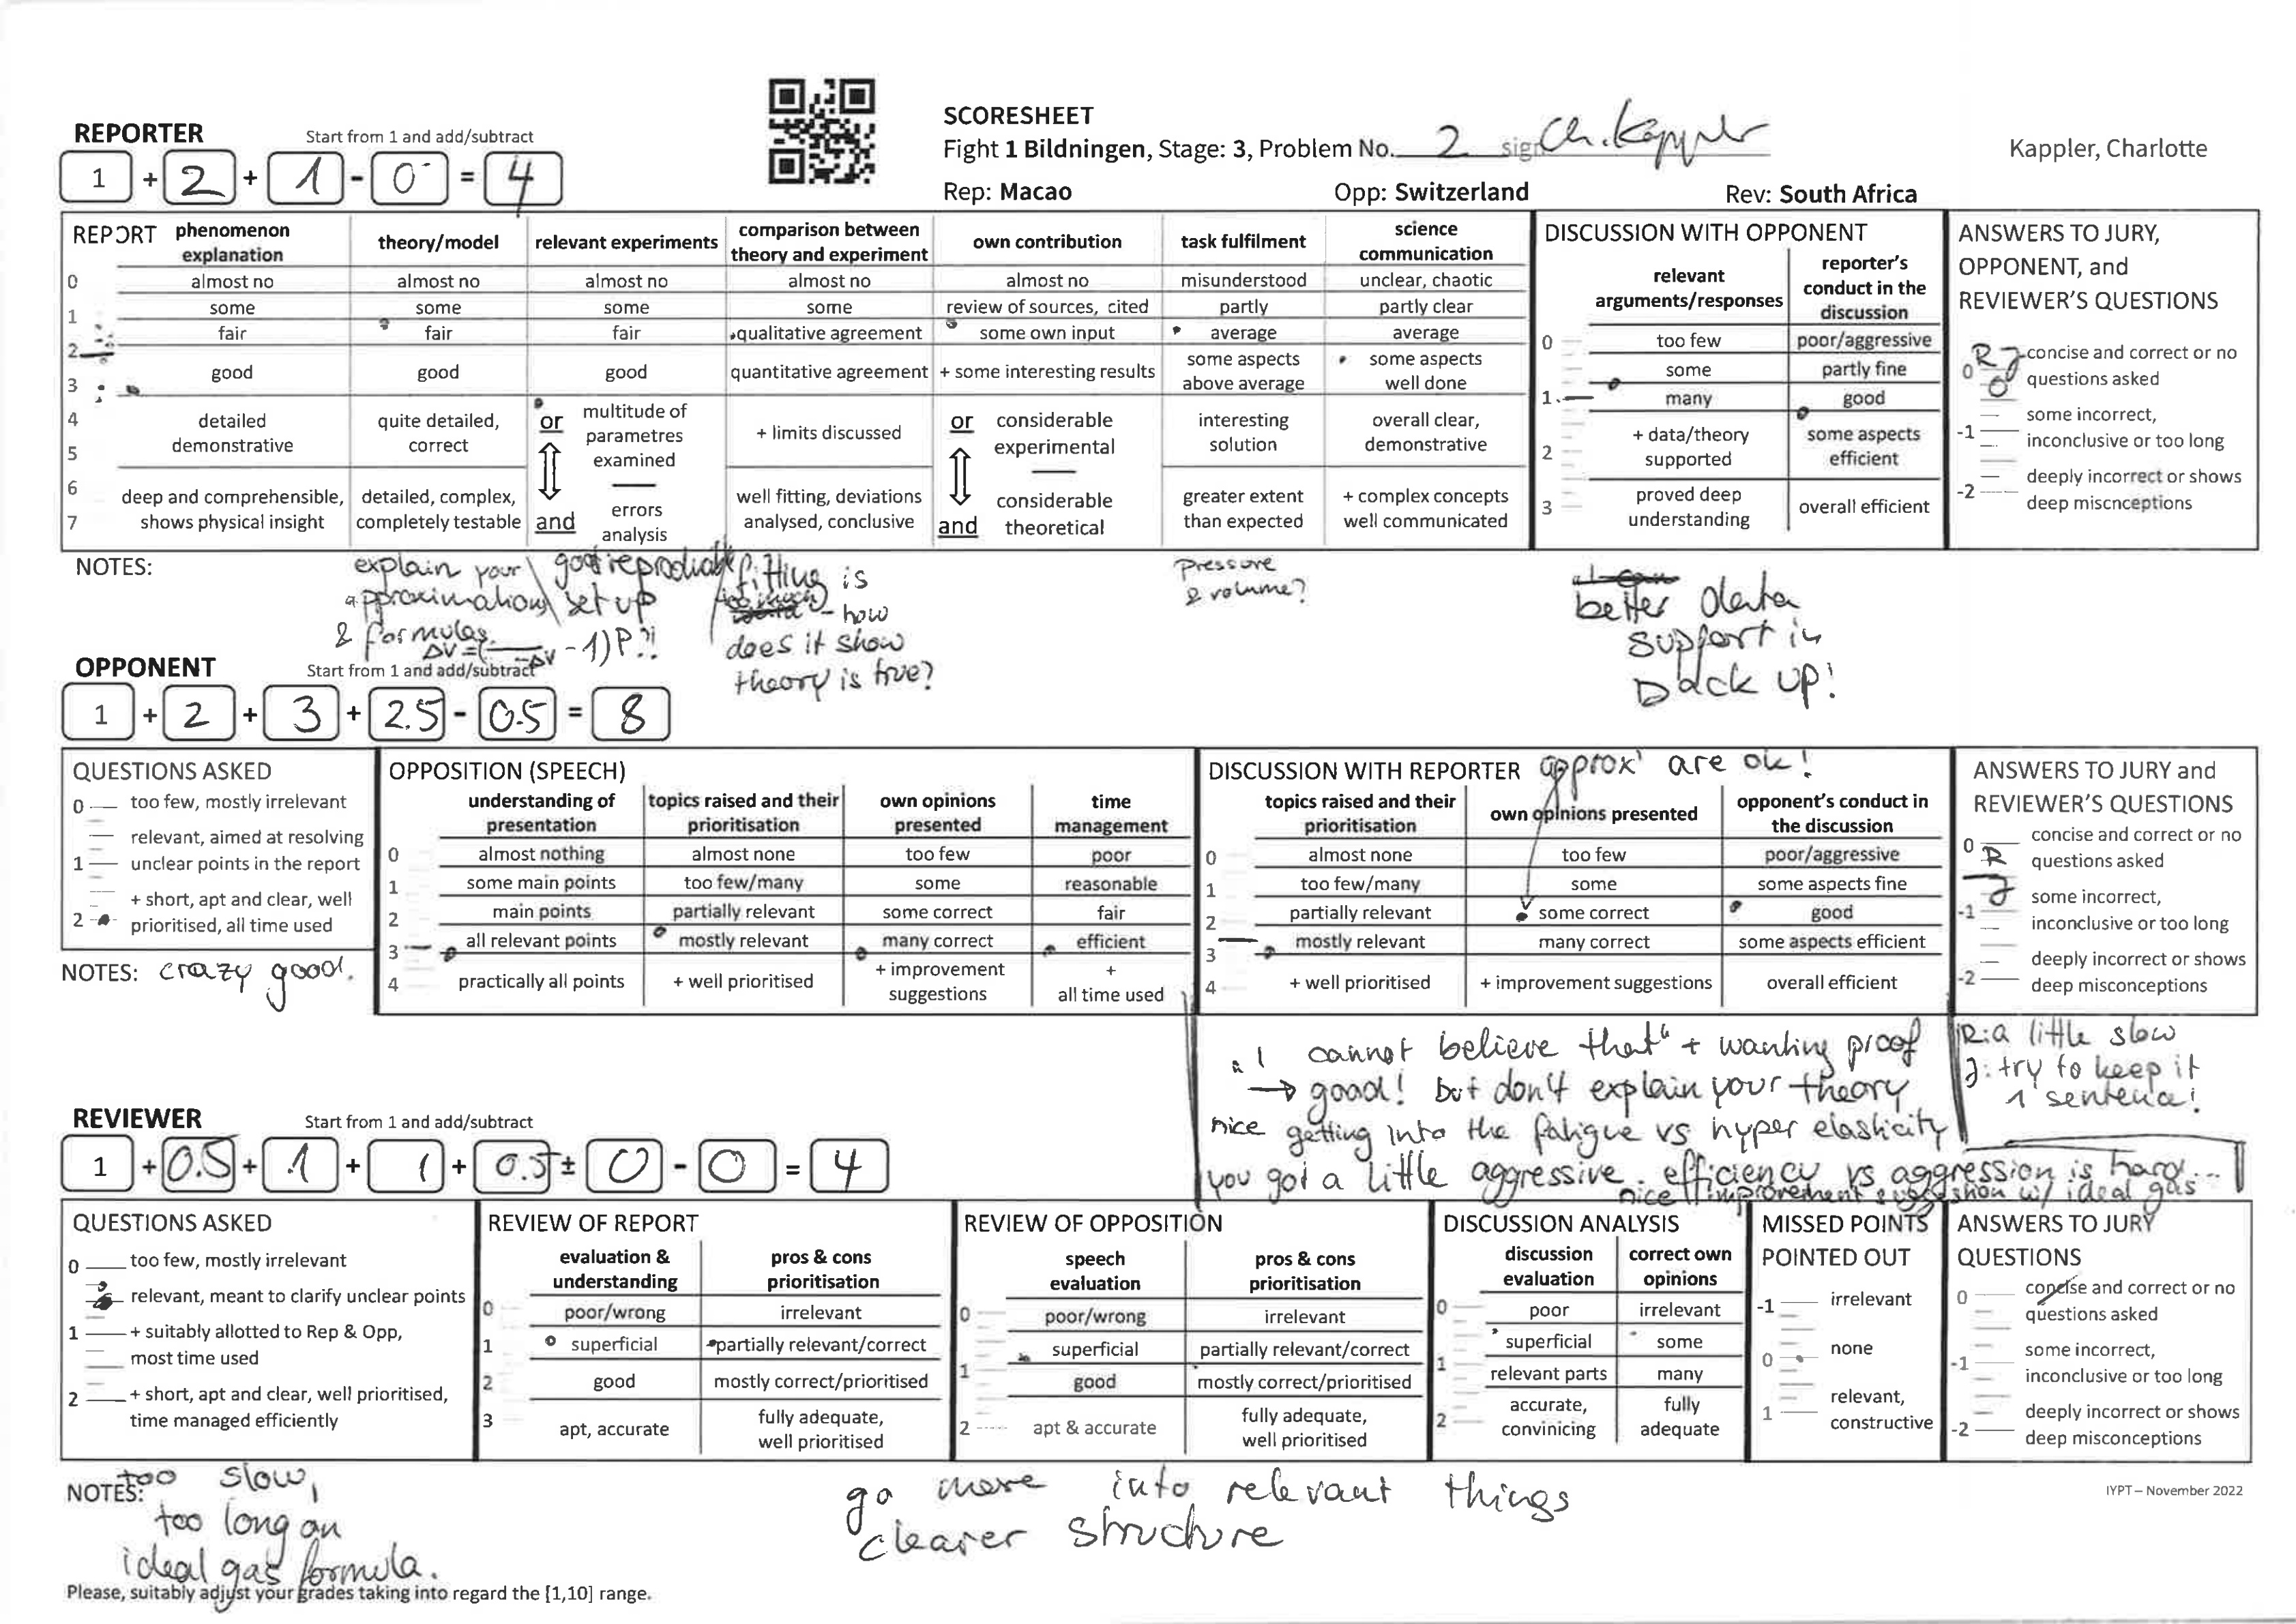 SCORESHEET
REPORTER Start from 1 and add/subtract
Fight 1 Bildningen, Stage: 3, Problem No. 2 sign Ch. Kappler
Kappler, Charlotte
1 + 2 + 1 - 0 = 4
Rep: Macao Opp: Switzerland Rev: South Africa
REPORT
phenomenon explanation
0 almost no
1 some
2 fair
3 good
4 detailed
5 demonstrative
6 deep and comprehensible,
7 shows physical insight
theory/model
almost no
some
fair
good
quite detailed,
correct
detailed, complex,
completely testable
relevant experiments
almost no
some
fair
good
or multitude of
parametres
examined
and errors
analysis
comparison between
theory and experiment
almost no
some
qualitative agreement
quantitative agreement
+ limits discussed
well fitting, deviations
analysed, conclusive
own contribution
almost no
review of sources, cited
some own input
+ some interesting results
or considerable
experimental
considerable
and theoretical
task fulfilment
misunderstood
partly
average
some aspects
above average
interesting
solution
greater extent
than expected
science
communication
unclear, chaotic
partly clear
average
some aspects
well done
overall clear,
demonstrative
+ complex concepts
well communicated
DISCUSSION WITH OPPONENT
relevant
arguments/responses
0 too few
some
1 many
+ data/theory
2 supported
3 proved deep
understanding
reporter's
conduct in the
discussion
poor/aggressive
partly fine
good
some aspects
efficient
overall efficient
ANSWERS TO JURY,
OPPONENT, and
REVIEWER'S QUESTIONS
R J
0 concise and correct or no
questions asked
some incorrect,
-1 inconclusive or too long
deeply incorrect or shows
-2 deep miscnceptions
NOTES:
explain your
approximations
& formulas
good reproducible
set up
fitting is
how
does it show
theory is true?
pressure
& volume?
better data
support in
back up!
OPPONENT Start from 1 and add/subtract
1 + 2 + 3 + 2.5 - 0.5 = 8
QUESTIONS ASKED
0 too few, mostly irrelevant
relevant, aimed at resolving
1 unclear points in the report
+ short, apt and clear, well
2 prioritised, all time used
NOTES: crazy good.
OPPOSITION (SPEECH)
understanding of
presentation
0 almost nothing
1 some main points
2 main points
3 all relevant points
4 practically all points
topics raised and their
prioritisation
almost none
too few/many
partially relevant
mostly relevant
+ well prioritised
own opinions
presented
too few
some
some correct
many correct
+ improvement
suggestions
time
management
poor
reasonable
fair
efficient
+
all time used
DISCUSSION WITH REPORTER approx' are ok!
topics raised and their
prioritisation
0 almost none
1 too few/many
2 partially relevant
3 mostly relevant
4 + well prioritised
own opinions presented
too few
some
some correct
many correct
+ improvement suggestions
opponent's conduct in
the discussion
poor/aggressive
some aspects fine
good
some aspects efficient
overall efficient
ANSWERS TO JURY and
REVIEWER'S QUESTIONS
0 concise and correct or no
R questions asked
J some incorrect,
-1 inconclusive or too long
deeply incorrect or shows
-2 deep misconceptions
"I cannot believe that" + wanting proof
→ good! but don't explain your theory
nice getting into the fatigue vs hyper elasticity
you got a little aggressive. efficiency vs aggression is hard...
nice improvement suggestion w/ ideal gas
R: a little slow
J: try to keep it
1 sentence!
REVIEWER Start from 1 and add/subtract
1 + 0.5 + 1 + 1 + 0.5 ± 0 - 0 = 4
QUESTIONS ASKED
0 too few, mostly irrelevant
relevant, meant to clarify unclear points
1 + suitably allotted to Rep & Opp,
most time used
2 + short, apt and clear, well prioritised,
time managed efficiently
REVIEW OF REPORT
evaluation &
understanding
0 poor/wrong
1 superficial
2 good
3 apt, accurate
pros & cons
prioritisation
irrelevant
partially relevant/correct
mostly correct/prioritised
fully adequate,
well prioritised
REVIEW OF OPPOSITION
speech
evaluation
0 poor/wrong
superficial
1 good
2 apt & accurate
pros & cons
prioritisation
irrelevant
partially relevant/correct
mostly correct/prioritised
fully adequate,
well prioritised
DISCUSSION ANALYSIS
discussion
evaluation
0 poor
superficial
1 relevant parts
accurate,
2 convinicing
correct own
opinions
irrelevant
some
many
fully
adequate
MISSED POINTS
POINTED OUT
-1 irrelevant
0 none
relevant,
1 constructive
ANSWERS TO JURY
QUESTIONS
0 concise and correct or no
questions asked
some incorrect,
-1 inconclusive or too long
deeply incorrect or shows
-2 deep misconceptions
NOTES: too slow,
too long on
ideal gas formula.
go more into relevant things
clearer structure
IYPT – November 2022
Please, suitably adjust your grades taking into regard the [1,10] range.